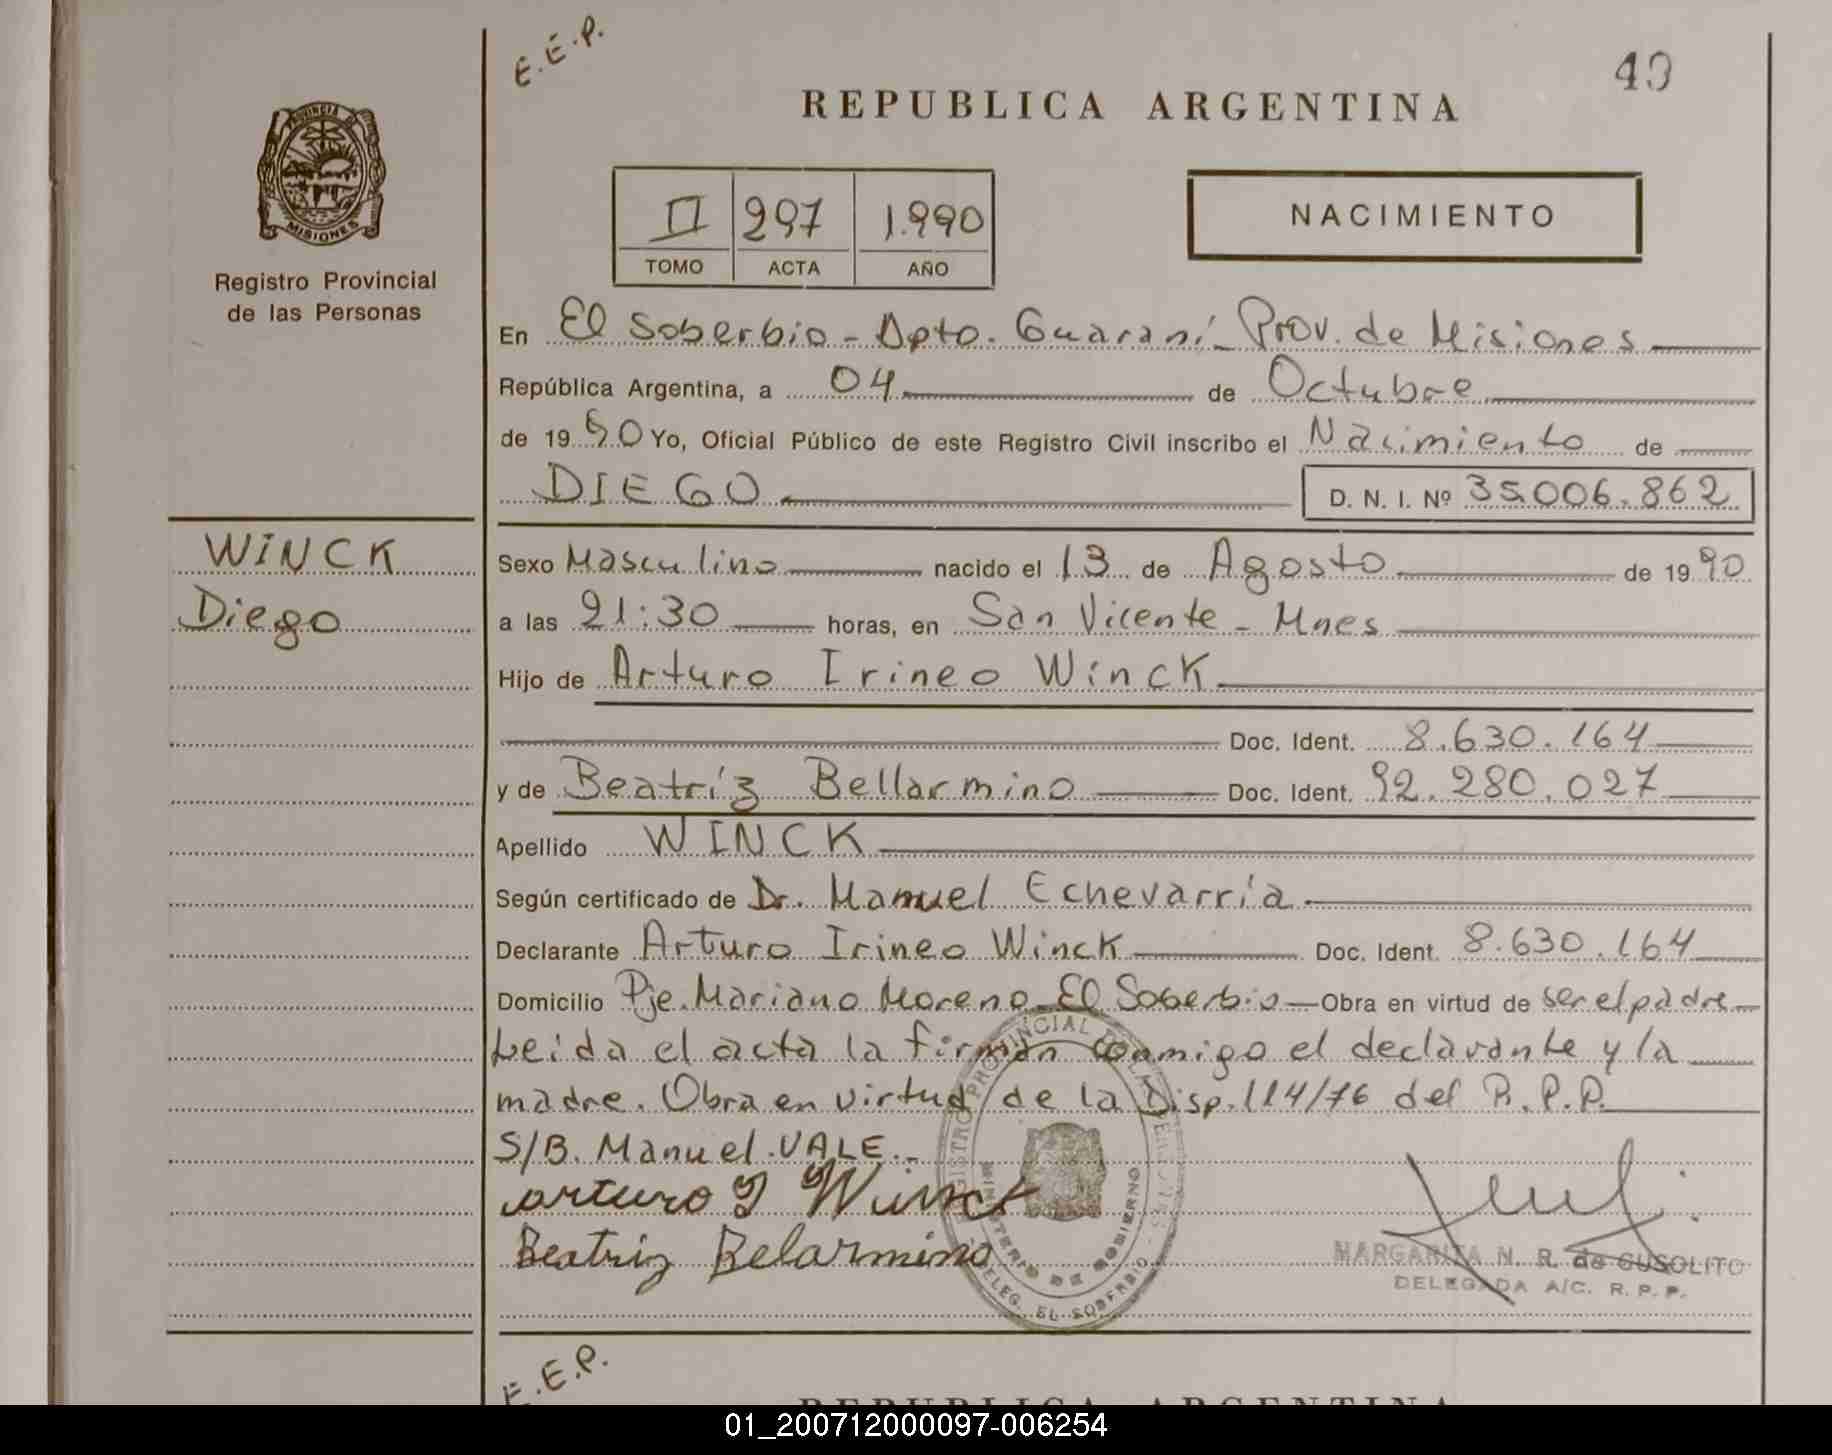 E.E.P.
49
REPUBLICA ARGENTINA
PROVINCIA DE
MISIONES
Registro Provincial
de las Personas
II 297 1.990
TOMO ACTA AÑO
NACIMIENTO
En El Soberbio - Dpto. Guaraní - Prov. de Misiones
República Argentina, a 04 de Octubre
de 1990 Yo, Oficial Público de este Registro Civil inscribo el Nacimiento de
DIEGO D. N. I. Nº 35.006.862
WINCK
Diego
Sexo Masculino nacido el 13 de Agosto de 1990
a las 21:30 horas, en San Vicente - Mnes
Hijo de Arturo Irineo Winck
Doc. Ident. 8.630.164
y de Beatríz Bellarmino Doc. Ident. 92.280.027
Apellido WINCK
Según certificado de Dr. Manuel Echevarría
Declarante Arturo Irineo Winck Doc. Ident. 8.630.164
Domicilio Pje. Mariano Moreno - El Soberbio Obra en virtud de ser el padre
Leida el acta la firman conmigo el declarante y la
madre. Obra en virtud de la Disp. 114/76 del R.P.P.
S/B. Manuel. VALE.-
arturo I Winck
Beatriz Belarmino
REGISTRO PROVINCIAL DE LAS PERSONAS
MINISTERIO DE GOBIERNO
DELEG. EL SOBERBIO
MARGARITA N. R. de GUSOLITO
DELEGADA A/C. R. P. P.
E.E.P.
REPUBLICA ARGENTINA
01_200712000097-006254